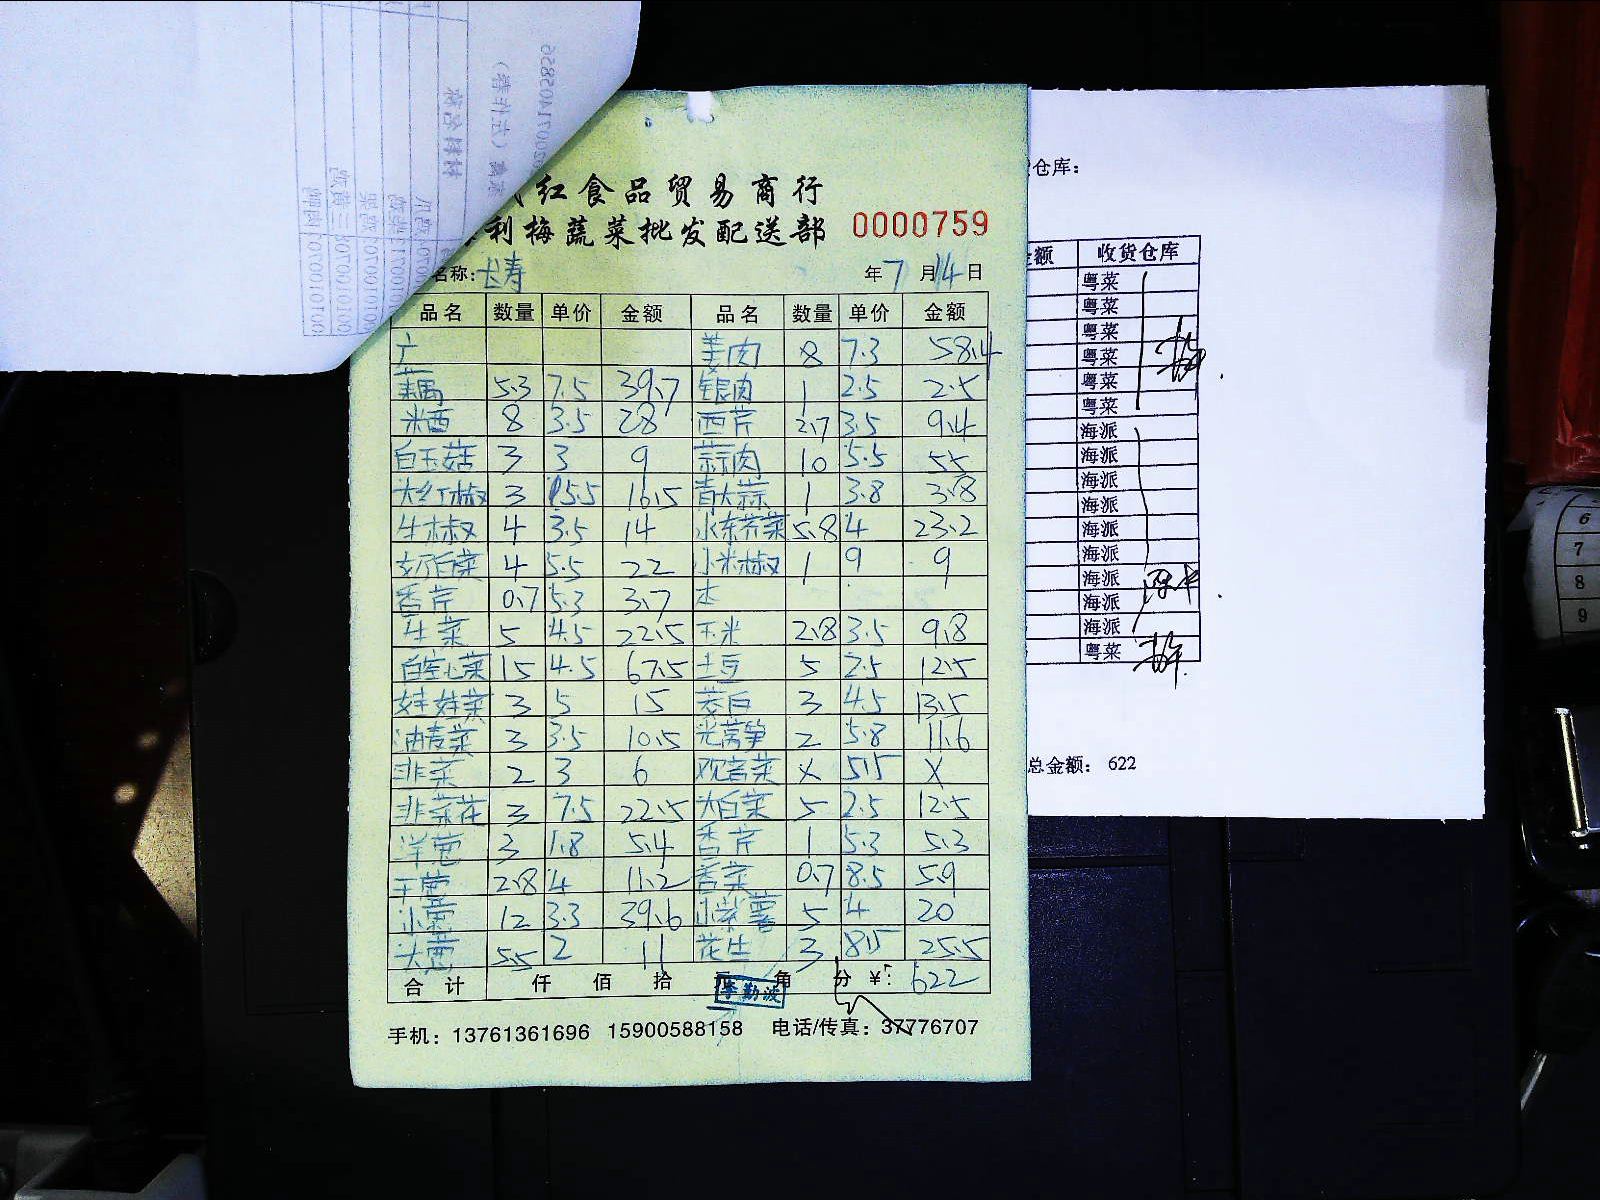 红食品贸易商行
利梅蔬菜批发配送部 0000759
名称: 长寿 年 7 月 14 日
品名 数量 单价 金额 品名 数量 单价 金额
广 姜肉 8 7.3 58.4
藕 5.3 7.5 39.7 银肉 1 2.5 2.5
米西 8 3.5 28 西芹 2.7 3.5 9.4
白玉菇 3 3 9 蒜肉 10 5.5 55
大红椒 3 5.5 16.5 青大蒜 1 3.8 3.8
牛椒 4 3.5 14 水东芥菜 5.8 4 23.2
奶白菜 4 5.5 22 小米椒 1 9 9
香芹 0.7 5.3 3.7 本
生菜 5 4.5 22.5 玉米 2.8 3.5 9.8
白空心菜 15 4.5 67.5 土豆 5 2.5 12.5
娃娃菜 3 5 15 茭白 3 4.5 13.5
油麦菜 3 3.5 10.5 光莴笋 2 5.8 11.6
韭菜 2 3 6 观音菜 X 5.5 X
韭菜花 3 7.5 22.5 大白菜 5 2.5 12.5
洋葱 3 1.8 5.4 香芹 1 5.3 5.3
干葱 2.8 4 11.2 香菜 0.7 8.5 5.9
小葱 12 3.3 39.6 小紫薯 5 4 20
大葱 5.5 2 11 花生 3 8.5 25.5
合计 仟 佰 拾 元 角 分 ¥: 622
李勤波
手机: 13761361696 15900588158 电话/传真: 37776707
仓库:
金额 收货仓库
粤菜
粤菜
粤菜
粤菜
粤菜
粤菜
海派
海派
海派
海派
海派
海派
海派
海派
海派
粤菜
总金额: 622
6
7
8
9